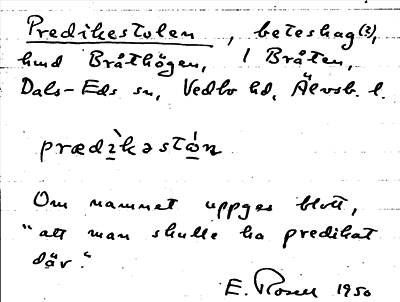 Predikestolen, beteshag(?),
hmd Bråthögen, 1 Bråten,
Dals-Eds sn, Vedbo hd, Älvsb. l.
prædì̱kəstó̱n
Om namnet uppges blott,
"att man skulle ha predikat
där."
E. Rosell 1950